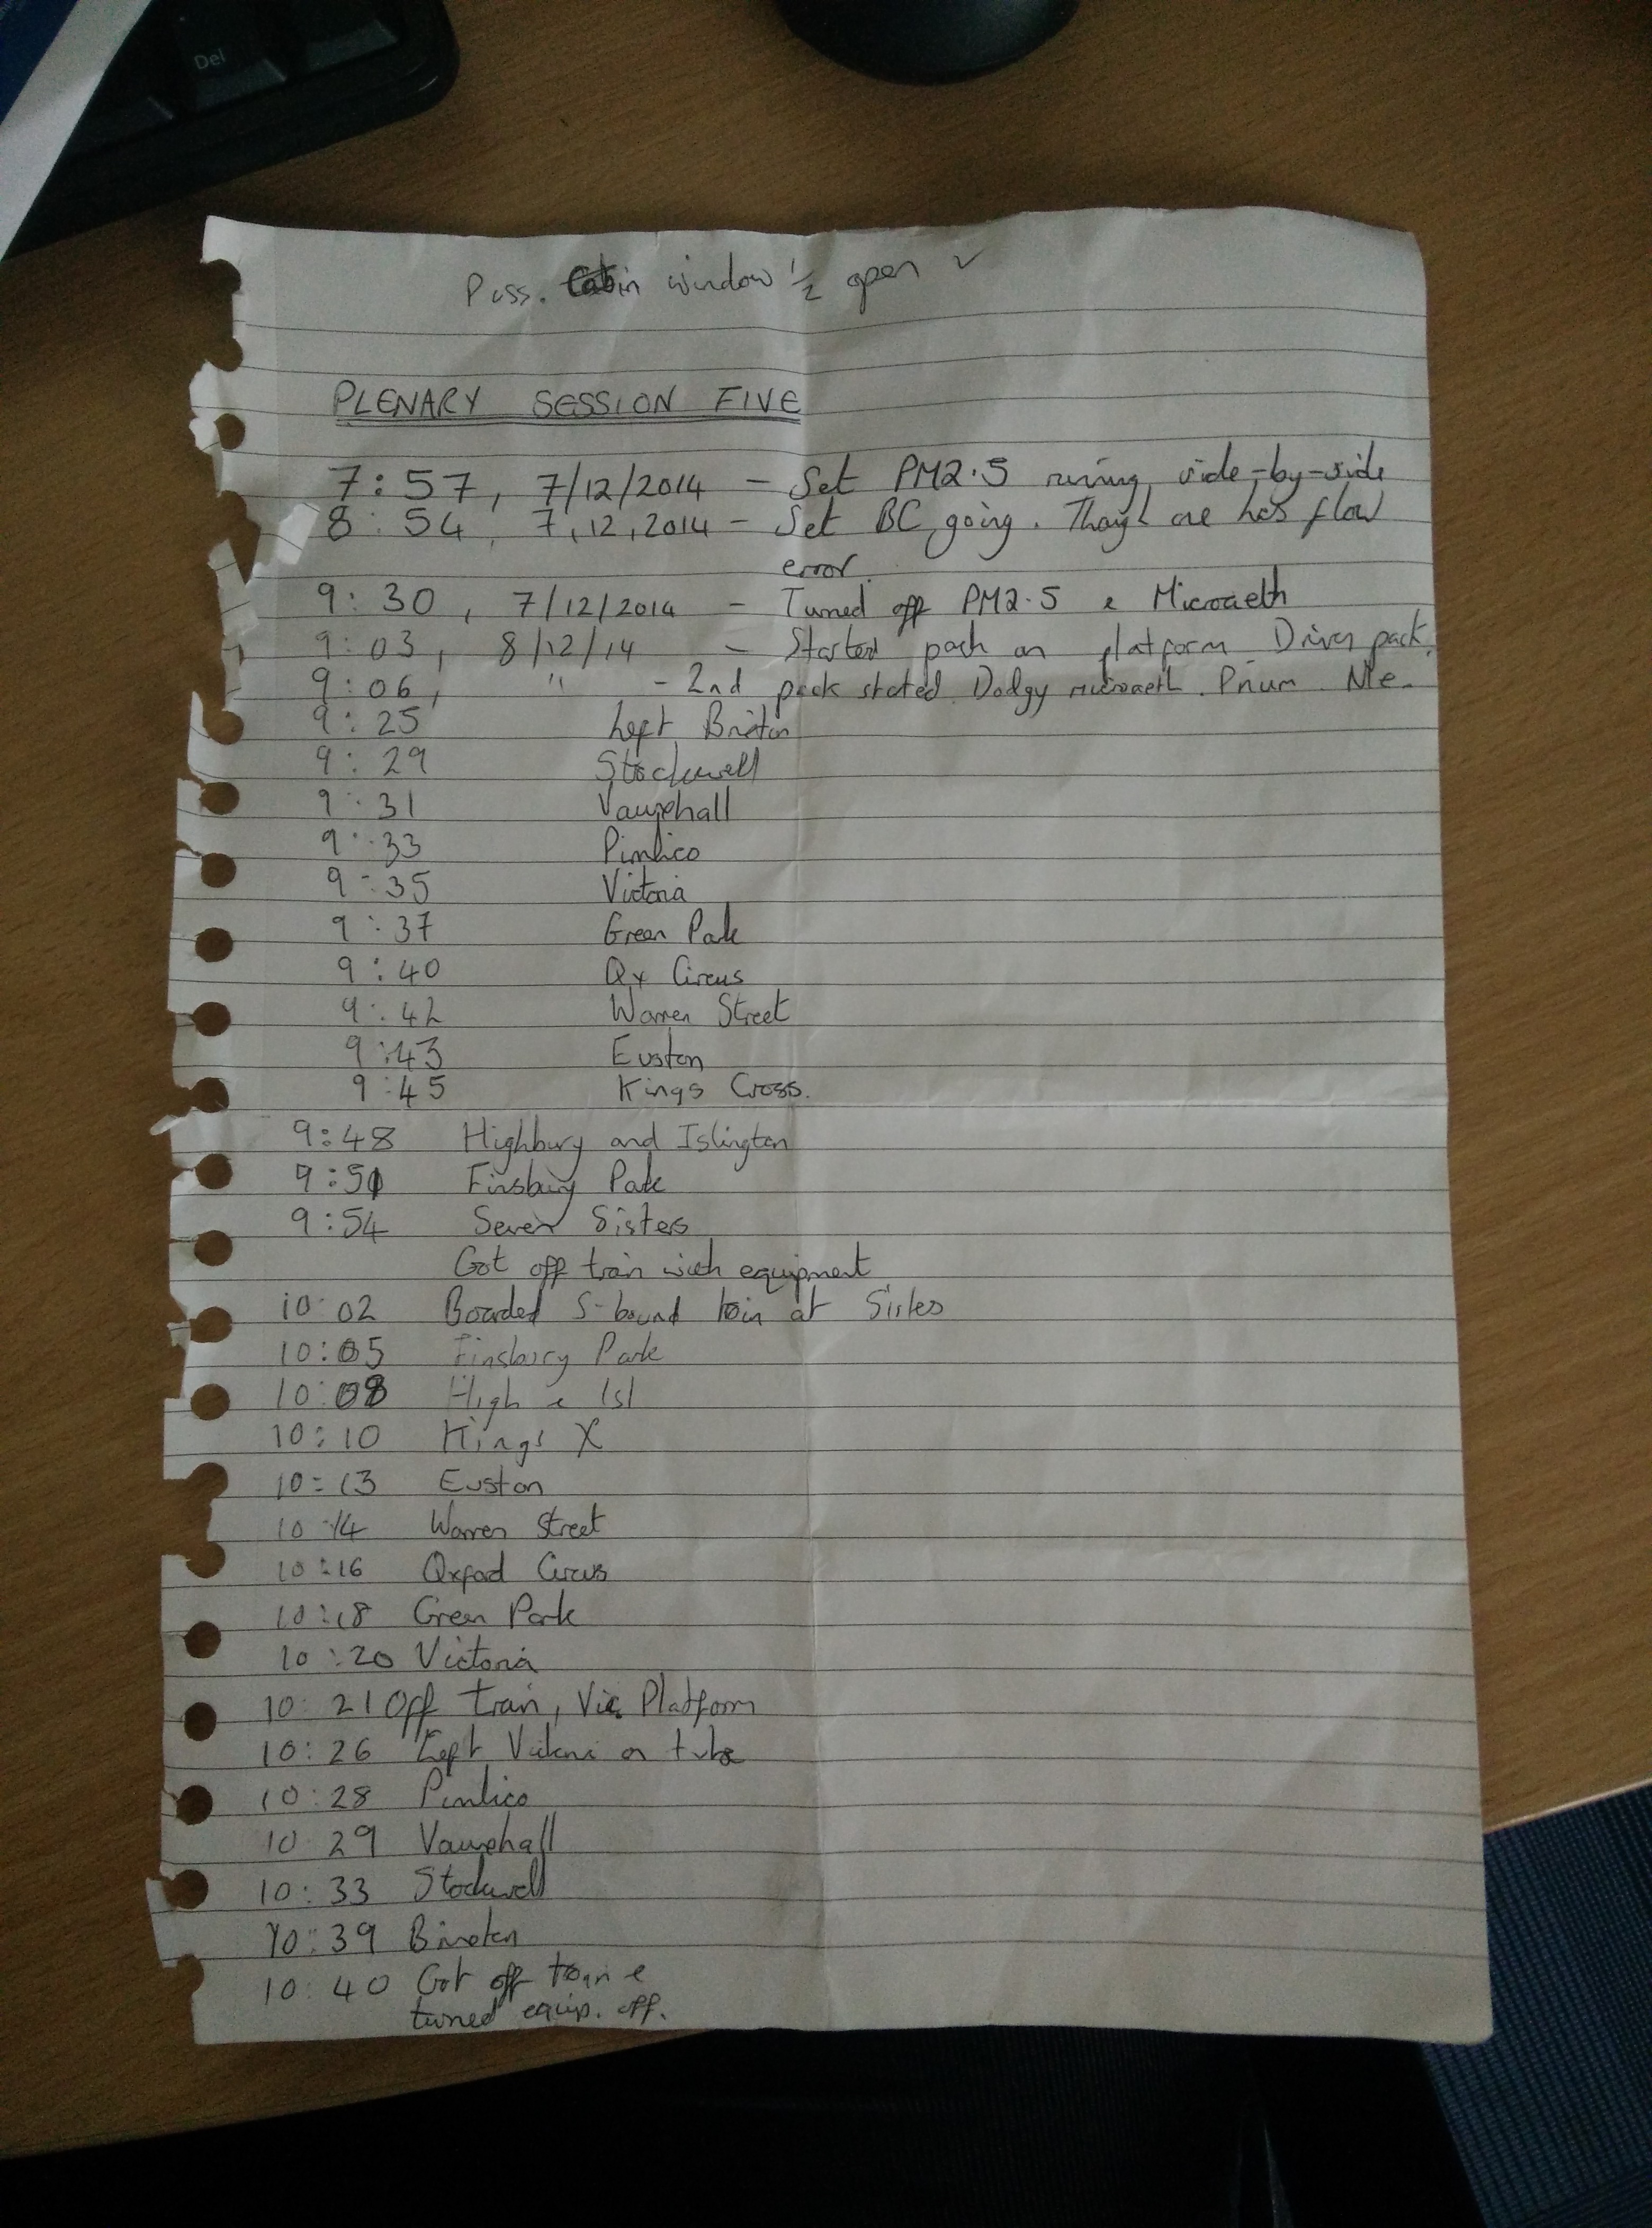 Del
Pass. Cabin window ½ open ✓
PLENARY SESSION FIVE
7:57, 7/12/2014 - Set PM2.5 runing, side-by-side
8:54, 7,12,2014 - Set BC going. Though one has flow
error.
9:30, 7/12/2014 - Turned off PM2.5 & Microaeth
9:03, 8/12/14 - Started pack on platform. Driver pack.
9:06, " - 2nd pack started. Dodgy microaeth.
9:25 Left Brixton
9:29 Stockwell
9:31 Vauxhall
9:33 Pimlico
9:35 Victoria
9:37 Green Park
9:40 Ox Circus
9:42 Warren Street
9:43 Euston
9:45 Kings Cross.
9:48 Highbury and Islington
9:51 Finsbury Park
9:54 Seven Sisters
Got off train with equipment
10:02 Boarded S-bound train at Sisters
10:05 Finsbury Park
10:08 High & Isl
10:10 Kings X
10:13 Euston
10:14 Warren Street
10:16 Oxford Circus
10:18 Green Park
10:20 Victoria
10:21 Off train, Vic Platform
10:26 Left Victoria on tube
10:28 Pimlico
10:29 Vauxhall
10:33 Stockwell
10:39 Brixton
10:40 Got off train &
turned equip. off.